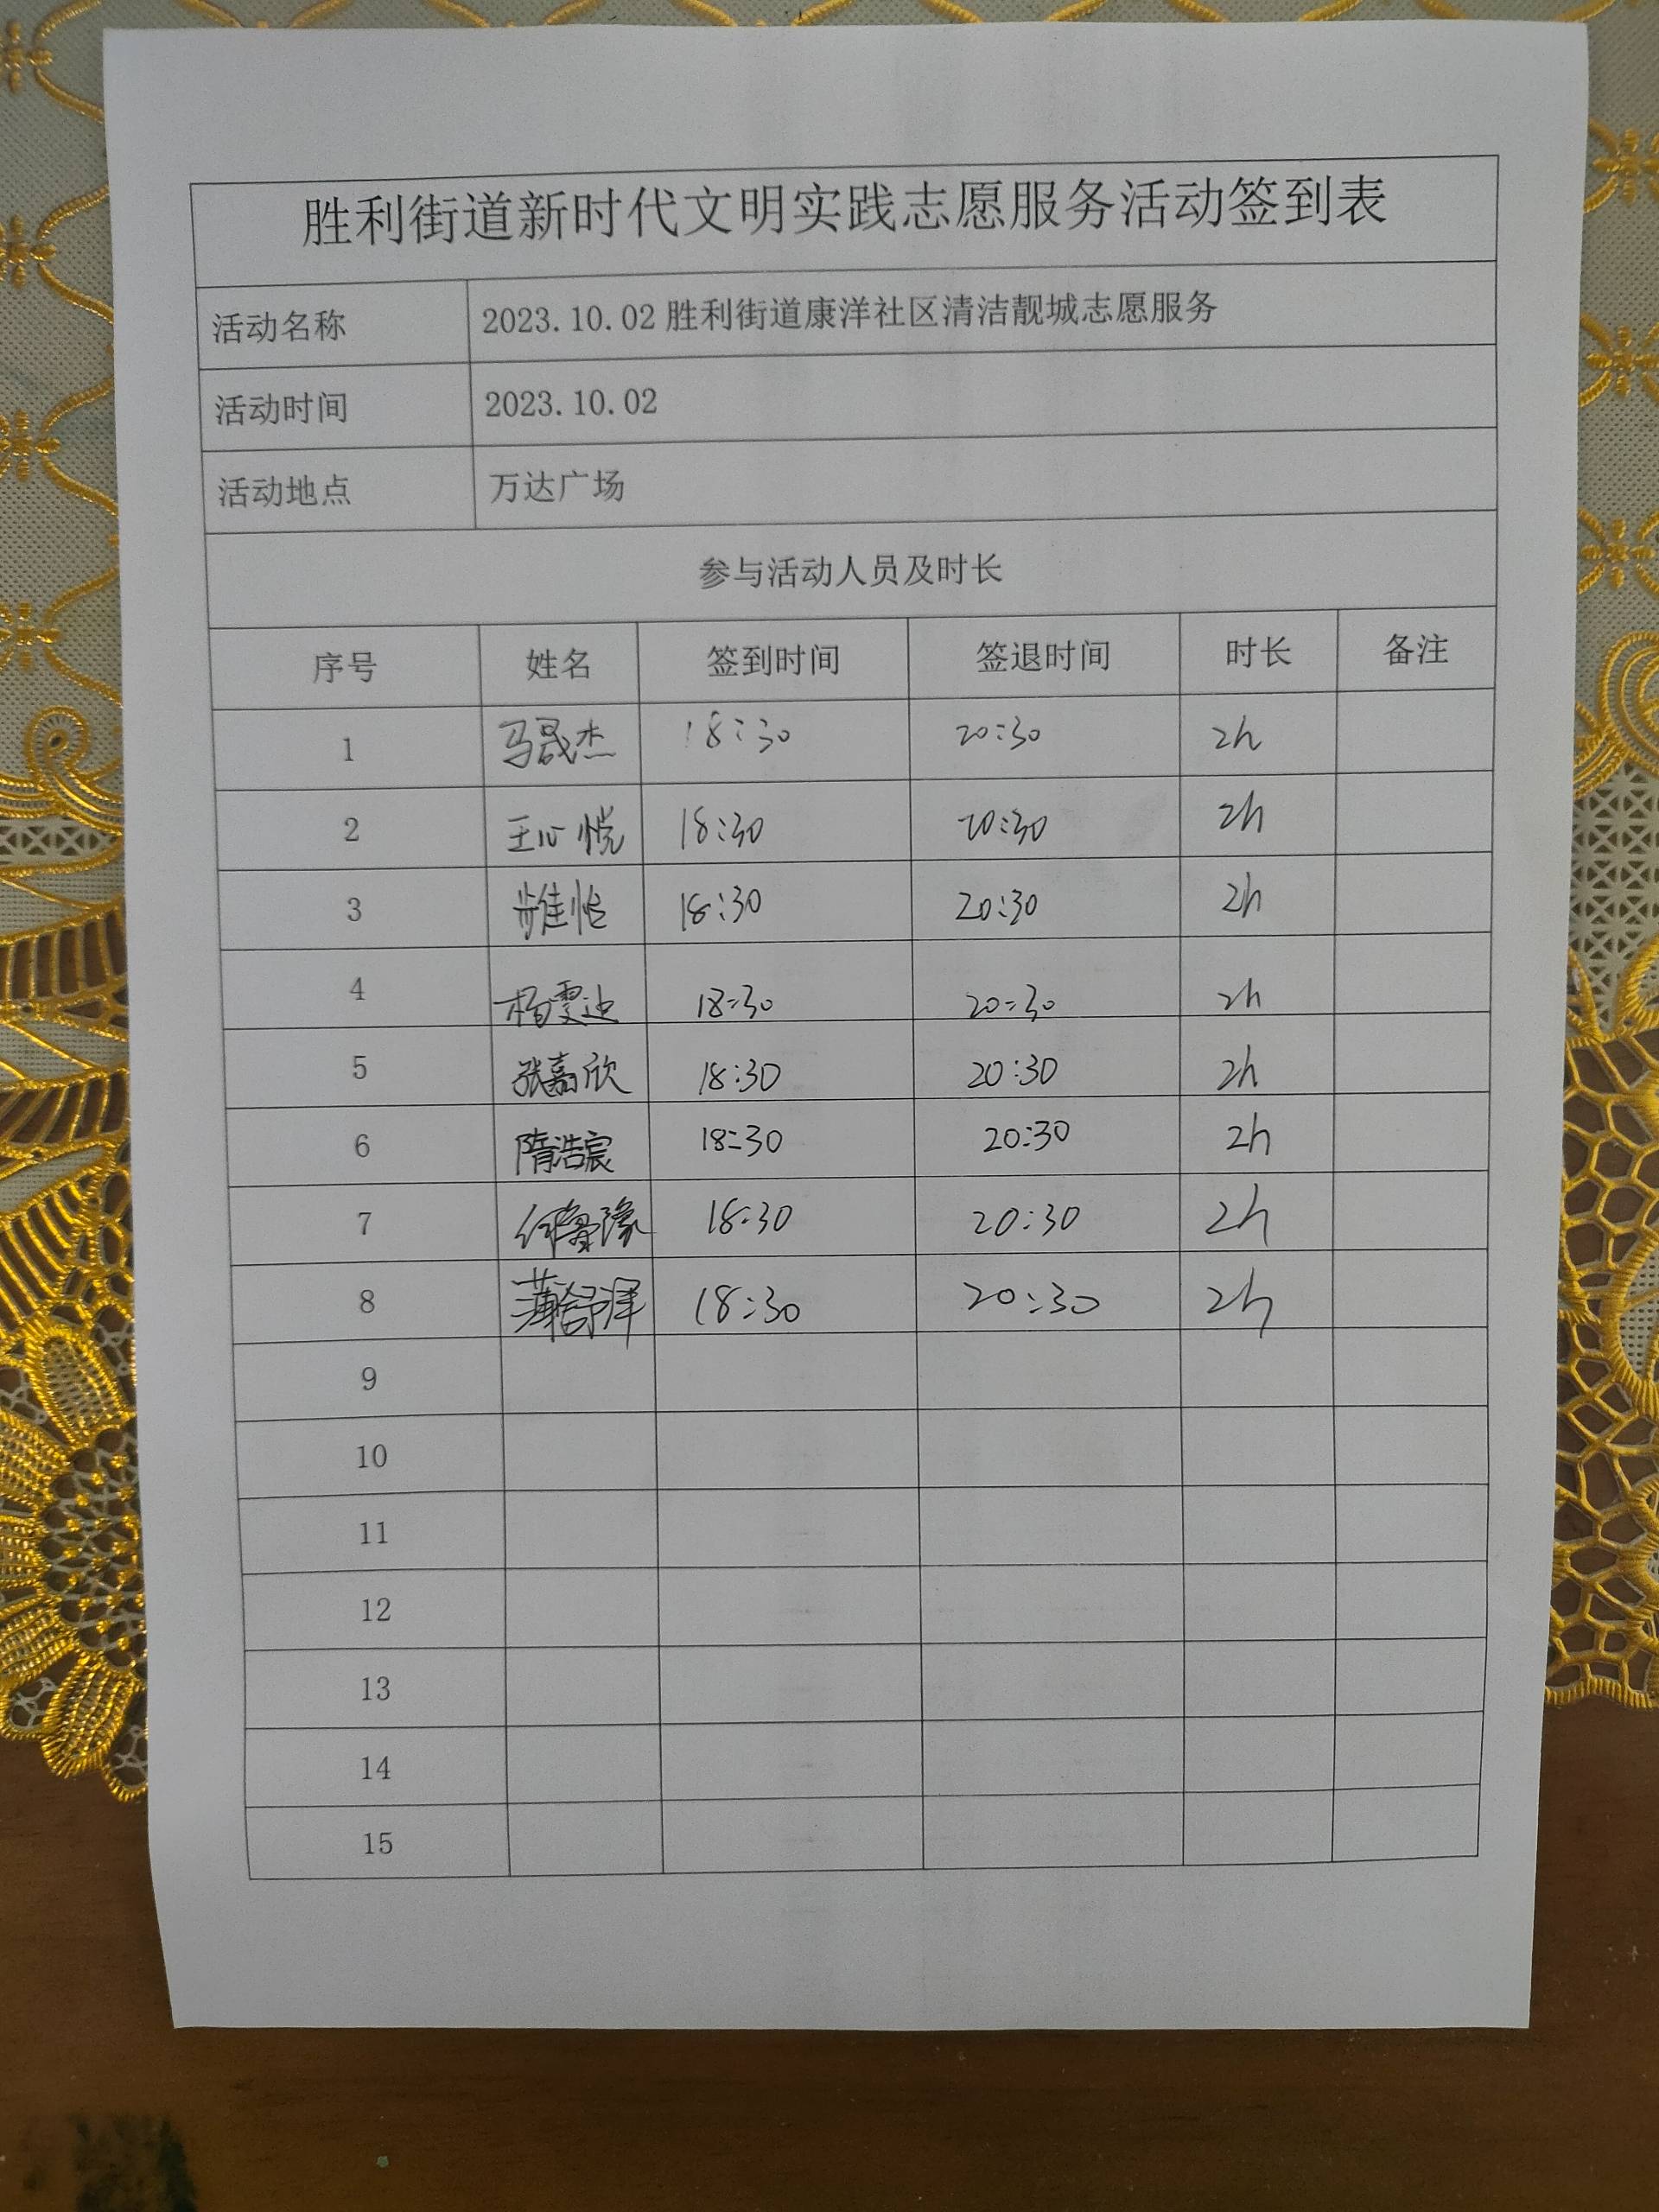 胜利街道新时代文明实践志愿服务活动签到表
活动名称 2023.10.02胜利街道康洋社区清洁靓城志愿服务
活动时间 2023.10.02
活动地点 万达广场
参与活动人员及时长
序号 姓名 签到时间 签退时间 时长 备注
1 马晟杰 18:30 20:30 2h
2 王心悦 18:30 20:30 2h
3 18:30 20:30 2h
4 杨雯迪 18:30 20:30 2h
5 张嘉欣 18:30 20:30 2h
6 隋浩宸 18:30 20:30 2h
7 18:30 20:30 2h
8 18:30 20:30 2h
9
10
11
12
13
14
15